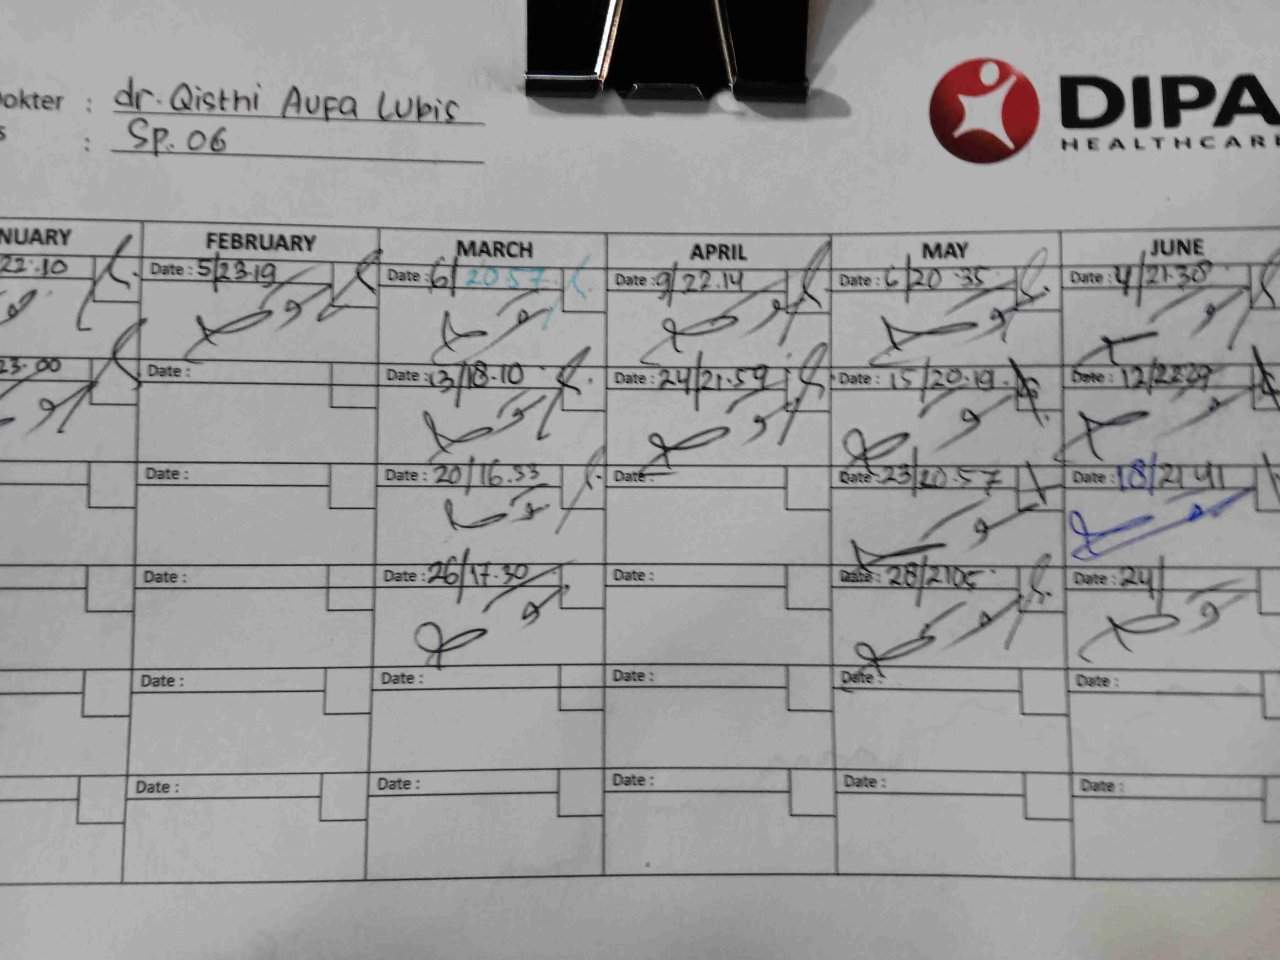 Dokter : dr. Qisthi Aufa Lubis
s : Sp. 06
DIPA
HEALTHCAR
NUARY FEBRUARY MARCH APRIL MAY JUNE
22.10 Date : 5/23.19 Date : 6/20 57 Date : 9/22.14 Date : 6/20.35 Date : 4/21.30
23.00 Date : Date : 13/18.10 Date : 24/21.59 Date : 15/20.19 Date : 12/2229
Date : Date : 20/16.33 Date : Date : 23/20.57 Date : 18/21 41
Date : Date : 26/17.30 Date : Date : 28/2105 Date : 24/
Date : Date : Date : Date : Date :
Date : Date : Date : Date : Date :